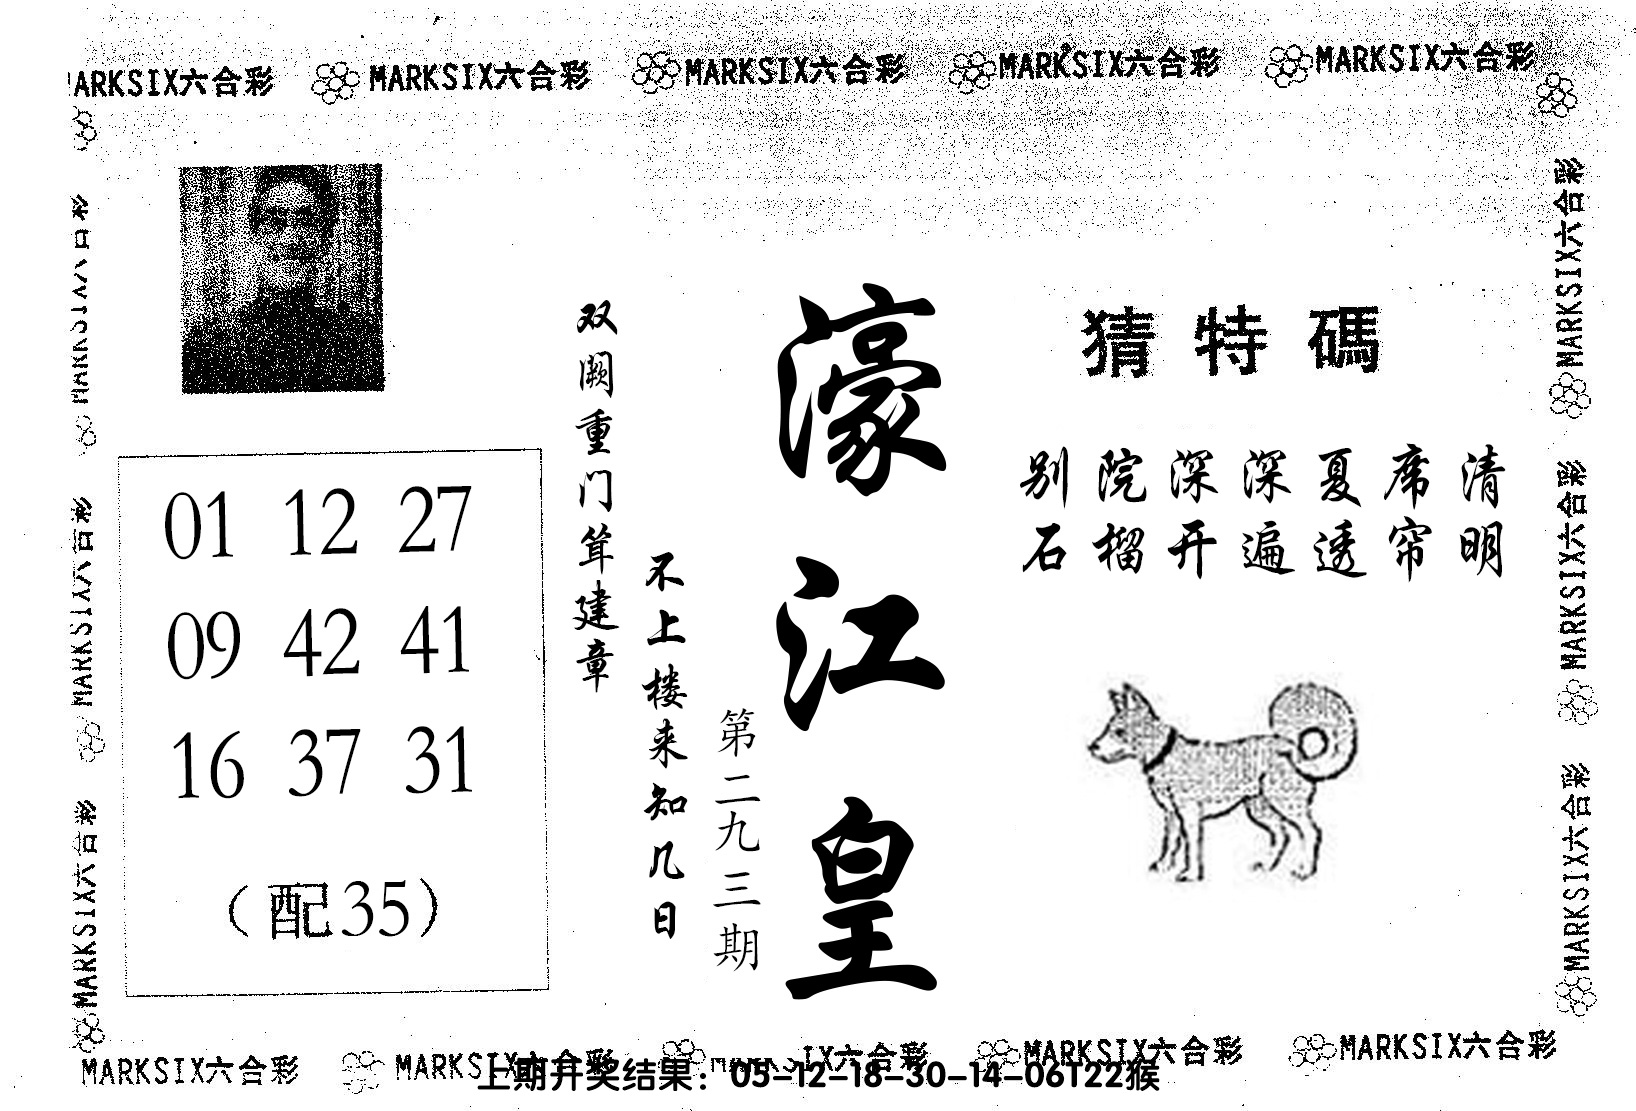 MARKSIX六合彩 MARKSIX六合彩 MARKSIX六合彩 MARKSIX六合彩 MARKSIX六合彩
猜特碼
别院深深夏席清
石榴开遍透帘明
濠江皇
第二九三期
双阙重门耸建章
不上楼来知几日
01 12 27
09 42 41
16 37 31
（配35）
MARKSIX六合彩
MARKSIX六合彩
MARKSIX六合彩
MARKSIX六合彩
MARKSIX六合彩
MARKSIX六合彩
MARKSIX六合彩 MARKSIX六合彩 MARKSIX六合彩 MARKSIX六合彩 MARKSIX六合彩
上期开奖结果：05-12-18-30-14-06T22猴